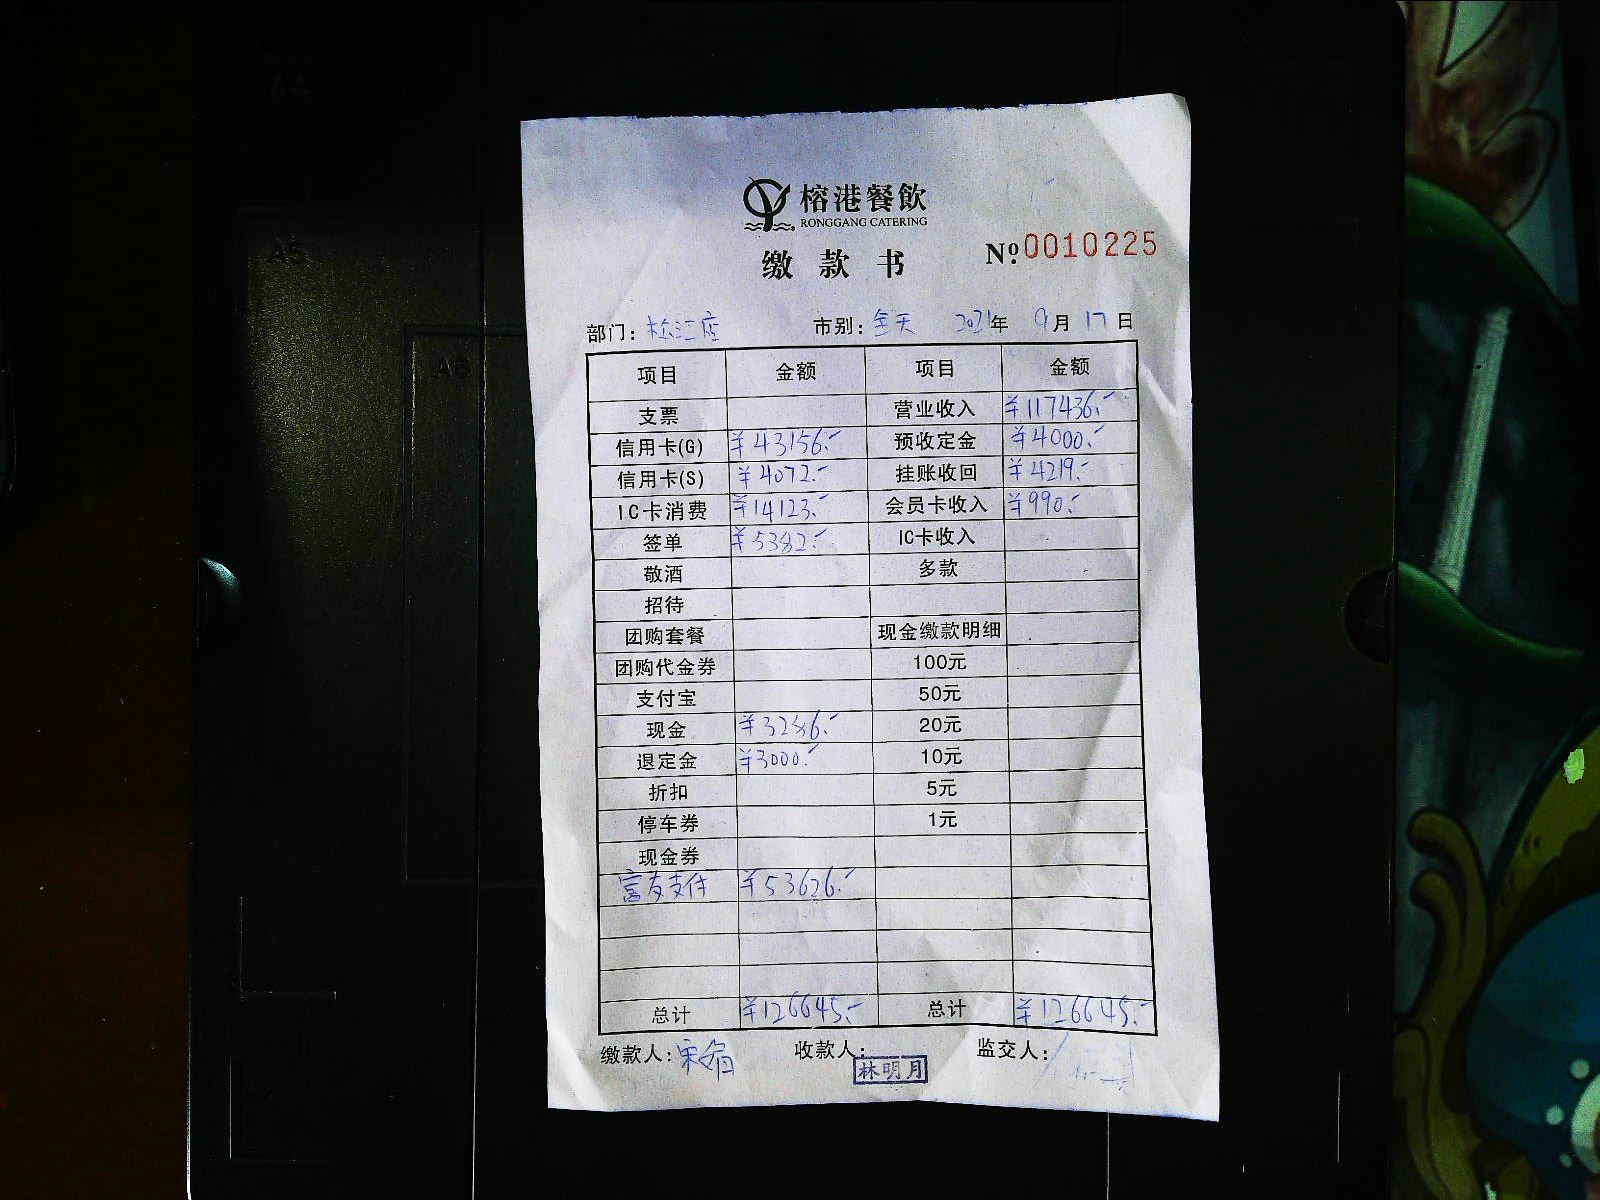 A4
A5
A6
榕港餐飲
RONGGANG CATERING
缴款书
Nº0010225
部门：松江店 市别：全天 2021年 9月 17日
项目 金额 项目 金额
支票 营业收入 ¥117436.-
信用卡(G) ¥43156.- 预收定金 ¥4000.-
信用卡(S) ¥4072.- 挂账收回 ¥4219.-
IC卡消费 ¥14123.- 会员卡收入 ¥990.-
签单 ¥5382.- IC卡收入
敬酒 多款
招待
团购套餐 现金缴款明细
团购代金券 100元
支付宝 50元
现金 ¥3286.- 20元
退定金 ¥3000.- 10元
折扣 5元
停车券 1元
现金券
富友支付 ¥53626.-
总计 ¥126645.- 总计 ¥126645.-
缴款人：宋娟 收款人：林明月 监交人：